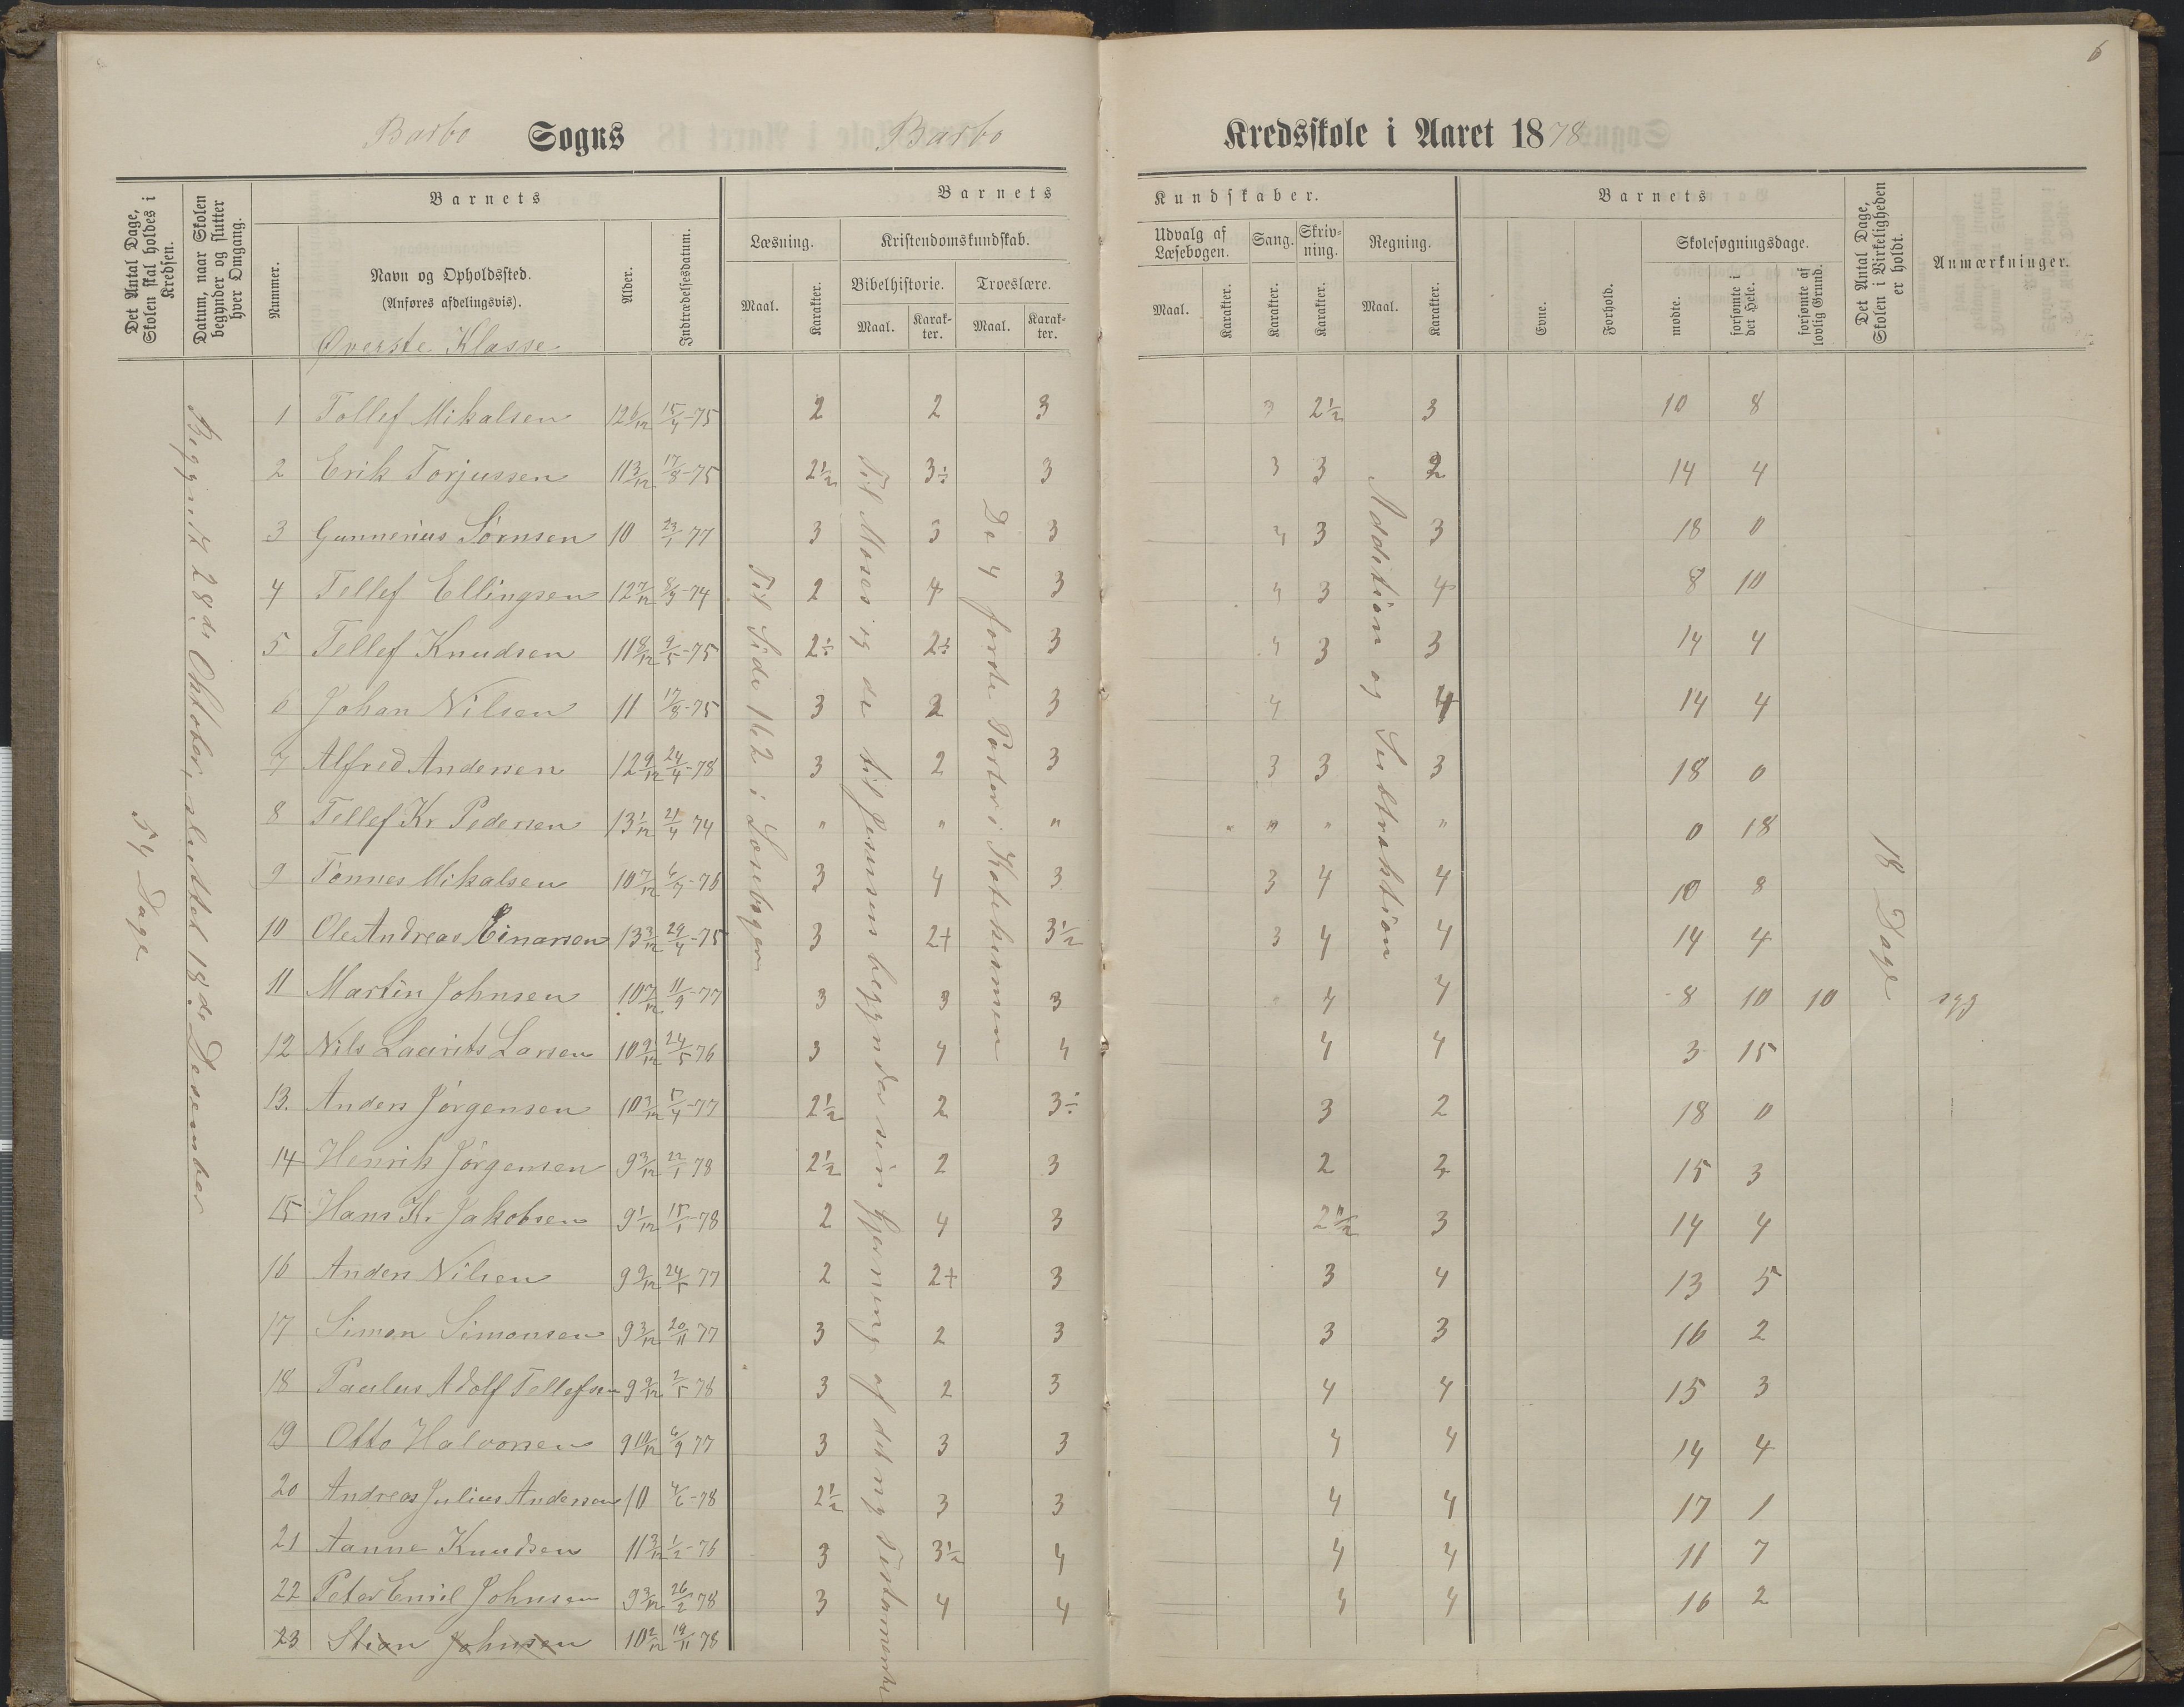 6
Barbo Sogns Barbo Kredsskole i Aaret 1878
Det Antal Dage, Skolen skal holdes i Kredsen.
Datum, naar Skolen begynder og slutter hver Omgang.
Barnets
Nummer.
Navn og Opholdssted.
(Anføres afdelingsvis).
Øverste Klasse
Alder.
Indtrædelsesdatum.
Barnets
Læsning.
Maal.
Karakter.
Kristendomskundskab.
Bibelhistorie.
Maal.
Karakter.
Troeslære.
Maal.
Karakter.
Kundskaber.
Udvalg af Læsebogen.
Maal.
Karakter.
Sang.
Karakter.
Skrivning.
Karakter.
Regning.
Maal.
Karakter.
Barnets
Evne.
Forhold.
Skolesøgningsdage.
mødte.
forsømte i det Hele.
forsømte af lovlig Grund.
Det Antal Dage, Skolen i Virkeligheden er holdt.
Anmærkninger.
54 Dage
Begyndt 28de Oktober, sluttet 18de Desember
Til Side 162 i Læsebogen
Til Moses og de til Jesusens begynder sin Gjerning af det ny Testamente
De 4 første Parter i Katekismen
Addition og Subtraktion
18 Dage
1 Tollef Mikalsen 12 6/12 15/4-75 2 2 3 3 2 1/2 3 10 8
2 Erik Torjussen 11 3/12 17/8-75 2 1/2 3÷ 3 3 3 2 14 4
3 Gunnerius Sørnsen 10 23/1-77 3 3 3 4 3 3 18 0
4 Tellef Ellingsen 12 7/12 8/9-74 2 4 3 4 3 4 8 10
5 Tellef Knudsen 11 8/12 9/5-75 2÷ 2÷ 3 4 3 3 14 4
6 Johan Nilsen 11 17/8-75 3 2 3 4 4 14 4
7 Alfred Andersen 12 9/12 24/4-78 3 2 3 3 3 3 18 0
8 Tellef Kr Pedersen 13 1/12 21/4 74 " " " " " " " 0 18
9 Tønnes Mikalsen 10 7/12 6/7-76 3 4 3 3 4 4 10 8
10 Ole Andreas Einarsen 13 3/12 29/4-75 3 2+ 3 1/2 3 4 4 14 4
11 Martin Johnsen 10 7/12 11/9-77 3 3 3 4 4 8 10 10 syg
12 Nils Laurits Larsen 10 9/12 24/5 76 3 4 4 4 4 3 15
13. Anders Jørgensen 10 3/12 5/4-77 2 1/2 2 3÷ 3 2 18 0
14 Henrik Jørgensen 9 3/12 22/1 78 2 1/2 2 3 2 3 15 3
15 Hans Kr. Jakobsen 9 1/12 15/1-78 2 4 3 2 1/2 3 14 4
16 Anders Nilsen 9 9/12 24/5 77 2 2+ 3 3 4 13 5
17 Simon Simonsen 9 3/12 20/11 77 3 2 3 3 3 16 2
18 Paulus Adolf Tellefsen 9 9/12 2/5 78 3 2 3 4 4 15 3
19 Otto Halvorsen 9 10/12 6/9 77 3 3 3 4 4 14 4
20 Andreas Julius Andersen 10 4/6-78 2 1/2 3 3 4 4 17 1
21 Aanne Knudsen 11 3/12 1/2-76 3 3 1/2 4 4 4 11 7
22 Peter Emil Johnsen 9 3/12 26/2 78 3 4 4 4 4 16 2
23 Stian Johnsen 10 2/12 19/11 78